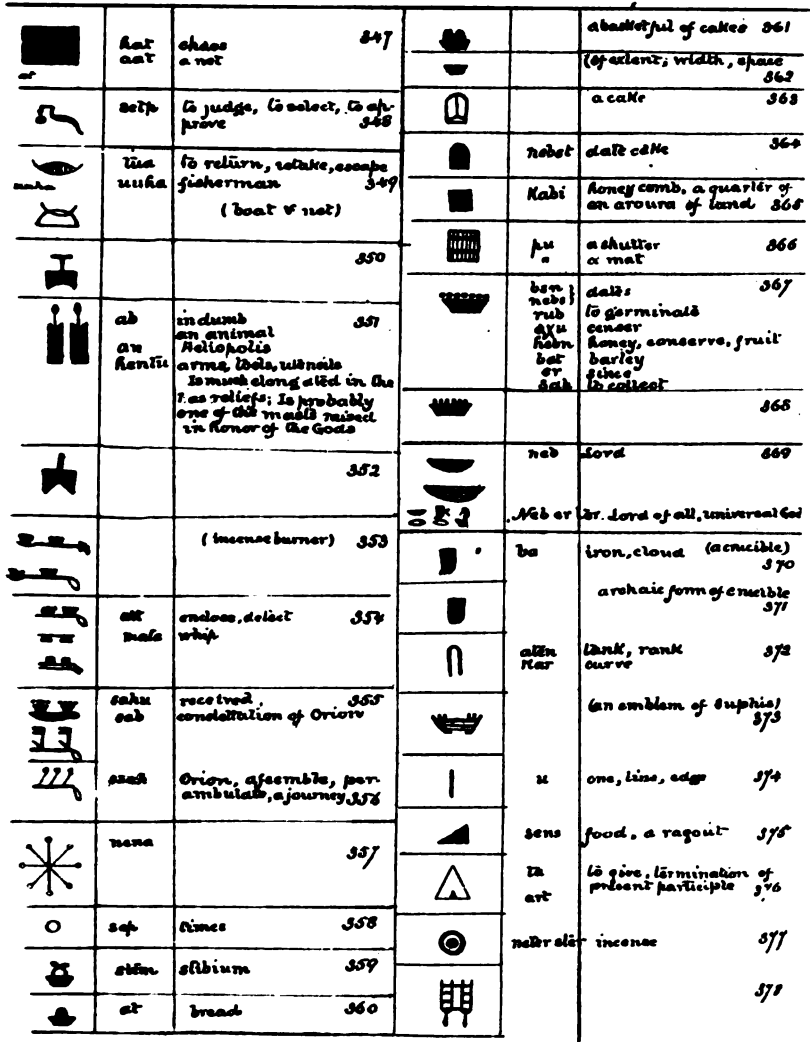 hat chaos 347
aat a net
at
setp to judge, to select, to ap-
prove 348
tua to return, retake, escape
uuha fisherman 349
(boat & net)
350
ab in dumb 351
an animal
an Heliopolis
hentu arms, tools, utensils
Is much elongated in the
T. as reliefs; Is probably
one of the masts raised
in honor of the Gods
352
(incense burner) 353
enclose, detect 354
whip
sahu received 355
sab constellation of Orion
Orion, assemble, per-
ambulate, a journey 356
nena 357
sep times 358
stem stibium 359
at bread 360
a basketful of cakes 361
(of extent; width, space
362
a cake 363
nebet date cake 364
Kabi honey comb, a quarter of
an aroura of land 365
pu a shutter 366
" a mat
ben dates 367
nebs
rub to germinate
censer
hebn honey, conserve, fruit
bet barley
er since
sak to collect
368
neb Lord 369
Neb er Lord of all, universal God
ba iron, cloud (a crucible)
370
archaic form of crucible
371
aten tank, rank 372
Kar curve
(an emblem of Suphis)
373
u one, line, edge 374
sens food, a ragout 375
ta to give, termination of
art present participle 376
neter ster incense 377
378